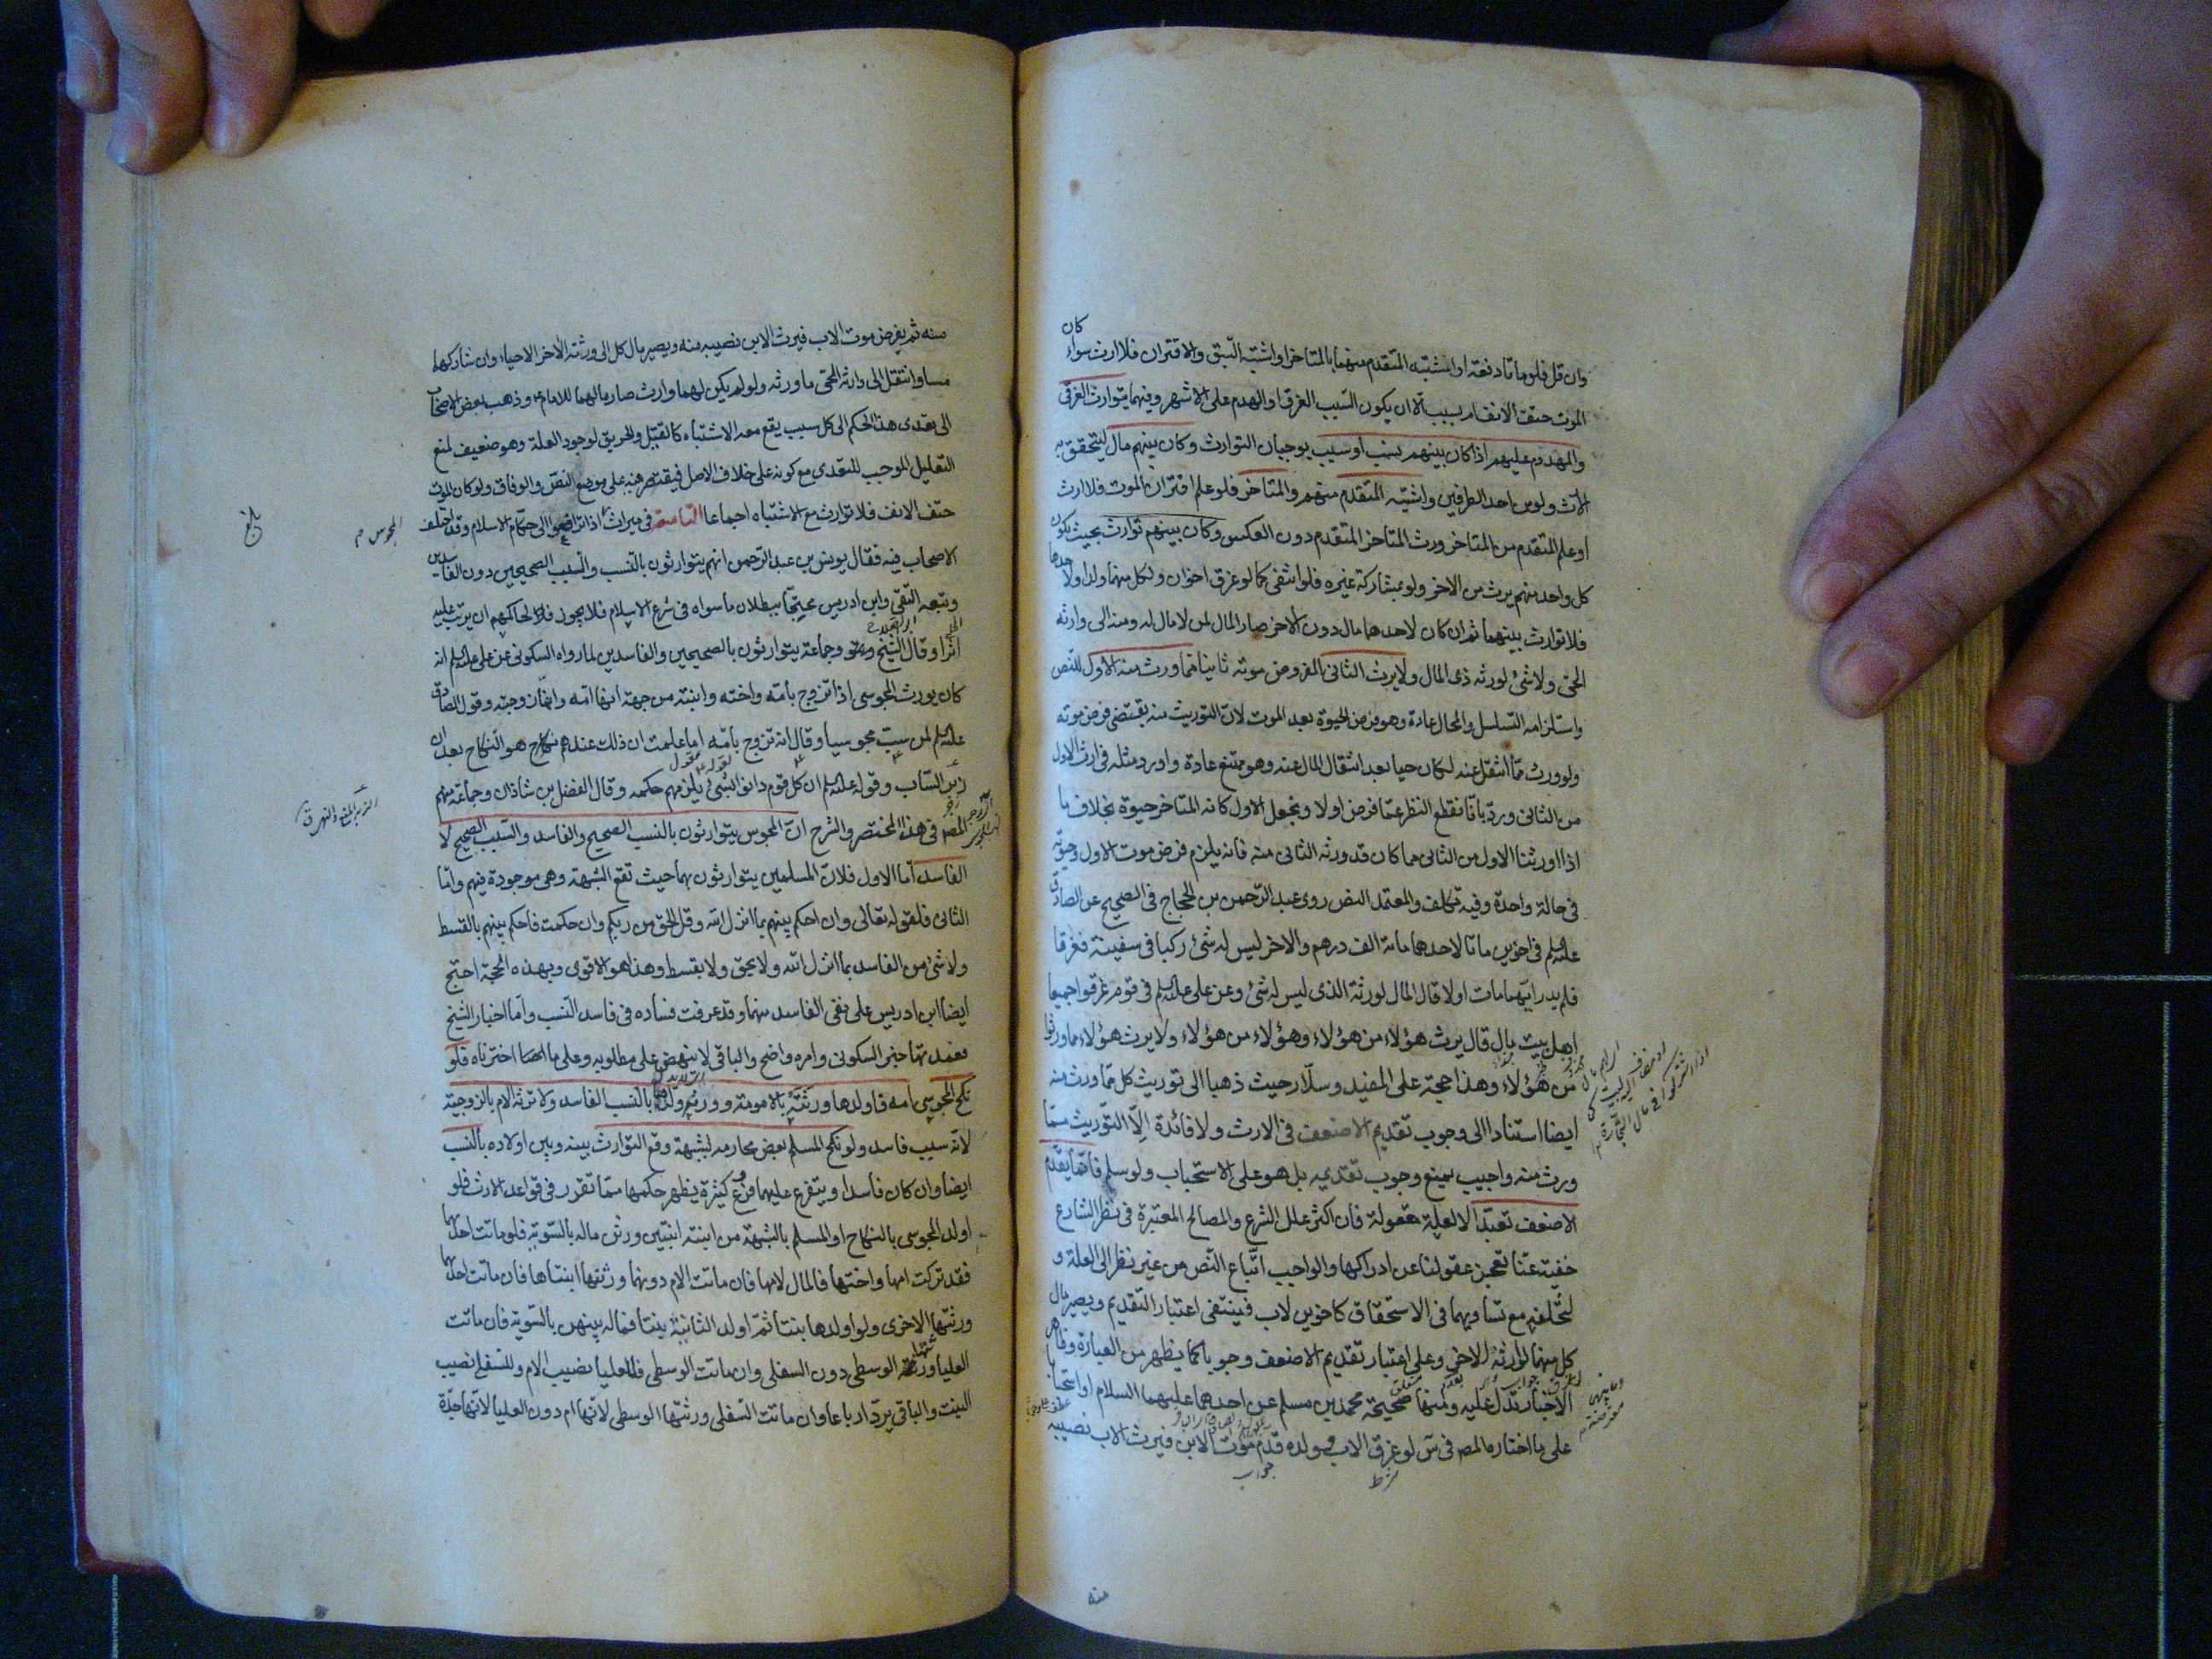 كان
وان قل فلو ماتا دفعة او اشتبه المتقدم منهما بالمتاخر او اشتبه السبق والاقتران فلا ارث سواء
الموت حتف الانف ام بسبب الا ان يكون السبب الغرق او الهدم على الاشهر وفيهما يتوارث الغرقى
والمهدوم عليهم اذا كان بينهم نسب او سبب يوجبان التوارث وكان بينهم مال ليتحقق به
الارث ولو من احد الطرفين واشتبه المتقدم منهم والمتاخر فلو علم اقتران الموت فلا ارث
او علم المتقدم من المتاخر ورث المتاخر المتقدم دون العكس وكان بينهم توارث بحيث يكون
كل واحد منهم يرث من الاخر ولو بمشاركة غيره فلو انتفى كما لو غرق اخوان ولكل منهما ولد او لاحدهما
فلا توارث بينهما ثم ان كان لاحدهما مال دون الاخر صار المال لمن لا مال له ومنه الى وارثه
الحي ولا شئ لورثه ذى المال ولا يرث الثانى المفروض موته ثانيا مما ورث منه الاول للنص
واستلزامه التسلسل والمحال عادة وهو فرض الحيوة بعد الموت لان التوريث منه يقتضى فرض موته
ولو ورث مما انتقل عنه لكان حيا بعد انتقال المال عنه وهو ممتنع عادة واورد مثله فى ارث الاول
من الثانى ورد بانا نقطع النظر عما فرض اولا ونجعل الاول كانه المتاخر حيوة بخلاف ما
اذا اورثنا الاول من الثانى مما كان قد ورثه الثانى منه فانه يلزم فرض موت الاول وحيوته
فى حالة واحدة وفيه تكلف والمعتمد النص روى عبد الرحمن بن الحجاج فى الصحيح عن الصادق
عليه السلم فى اخوين ماتا لاحدهما مائة الف درهم والاخر ليس له شئ ركبا فى سفينة فغرقا
فلم يدر ايهما مات اولا قال المال لورثة الذى ليس له شئ وعن على عليه السلم فى قوم غرقوا جميعا
اهل بيت مال قال يرث هؤلاء من هؤلاء وهؤلاء من هؤلاء ولا يرث هؤلاء مما ورثوا
من هؤلاء وهذا حجة على المفيد وسلار حيث ذهبا الى توريث كل مما ورث منه
ايضا استنادا الى وجوب تقديم الاضعف فى الارث ولا فائدة الا التوريث مما
ورث منه واجيب بمنع وجوب تقديمه بل هو على الاستحباب ولو سلم فانما يقدم
الاضعف تعبدا لا لعلة معقولة فان اكثر علل الشرع والمصالح المعتبرة فى نظر الشارع
خفية عنا تعجز عقولنا عن ادراكها والواجب اتباع النص من غير نظر الى العلة و
لتخلفه مع تساويهما فى الاستحقاق كاخوين لاب فينتفى اعتبار التقديم ويصير مال
كل منهما لورثة الاخر وعلى اعتبار تقديم الاضعف وجوبا كما يظهر من العبارة وظاهر
الاخبار تدل عليه ومنها صحيحة محمد بن مسلم عن احدهما عليهما السلام او استحبابا
على ما اختاره المصر فى س لو غرق الاب وولده قدم موت الابن فيرث الاب نصيبه
شرط
جواب
منه
منه ثم يفرض موت الاب فيرث الابن نصيبه منه ويصير مال كل الى ورثة الاخر الاحياء وان شاركهما
مساو انتقل الى وارثه الحى ما ورثه ولو لم يكن لهما وارث صار مالهما للامام ع وذهب بعض الاصحاب
الى تعدى هذا الحكم الى كل سبب يقع معه الاشتباه كالقتيل والحريق لوجود العلة وهو ضعيف لمنع
التعليل الموجب للتعدى مع كونه على خلاف الاصل فيقتصر فيه على موضع النص والوفاق ولو كان الموت
حتف الانف فلا توارث مع الاشتباه اجماعا الثامنة فى ميراث اذا ترافعوا الى حكام الاسلام وقد اختلف
المجوس م
بلغ
الاصحاب فيه فقال يونس بن عبد الرحمن انهم يتوارثون بالنسب والسبب الصحيحين دون الفاسدين
وتبعه التقى وابن ادريس محتجا ببطلان ما سواه فى شرع الاسلام فلا يجوز لحاكمهم ان يرتب عليه
اثرا وقال الشيخ وجماعة يتوارثون بالصحيحين والفاسدين لما رواه السكونى عن على عليه السلم انه
كان يورث المجوسى اذا تزوج بامه واخته وابنته من جهة انها امه وانها زوجته وقول الصادق
عليه السلم لمن سب مجوسيا وقال انه تزوج بامه اما علمت ان ذلك عندهم نكاح هو النكاح بعد ان
زبر الساب وقوله عليه السلم ان كل قوم دانوا بشئ يلزمهم حكمه وقال الفضل بن شاذان وجماعة منهم
المصر فى هذا المختصر والشرح ان المجوس يتوارثون بالنسب الصحيح والفاسد والسبب الصحيح لا
الفاسد اما الاول فلان المسلمين يتوارثون بهما حيث تقع الشبهة وهى موجودة فيهم واما
الثانى فلقوله تعالى وان احكم بينهم بما انزل الله وقل الحق من ربكم وان حكمت فاحكم بينهم بالقسط
ولا شئ من الفاسد بما انزل الله ولا بحق ولا بقسط وهذا هو الاقوى وبهذه الحجة احتج
ايضا ابن ادريس على نفى الفاسد منهما وقد عرفت فساده فى فاسد النسب واما اخبار الشيخ
فعمدتها خبر السكونى وامره واضح والباقى لا ينهض على مطلوبه وعلى ما اخترناه فلو
نكح المجوسى امه فاولدها ورثته بالامومة وورثه ولدها بالنسب الفاسد ولا ترثه الام بالزوجية
لانه سبب فاسد ولو نكح المسلم بعض محارمه لشبهة وقع التوارث بينه وبين اولاده بالنسب
ايضا وان كان فاسدا ويتفرع عليهما فروع كثيرة يظهر حكمها مما تقرر فى قواعد الارث فلو
اولد المجوسى بالنكاح او المسلم بالشبهة من ابنته ابنتين ورثن ماله بالسوية فلو ماتت احدهما
فقد تركت امها واختها فالمال لامها فان ماتت الام دونهما ورثتها ابنتاها فان ماتت احدهما
ورثتها الاخرى ولو اولدها بنتا ثم اولد الثانية بنتا فماله بينهن بالسوية فان ماتت
العليا ورثتها الوسطى دون السفلى وان ماتت الوسطى فللعليا نصيب الام وللسفلى نصيب
البنت والباقى يرد ارباعا وان ماتت السفلى ورثتها الوسطى لانها ام دون العليا لانها جدة